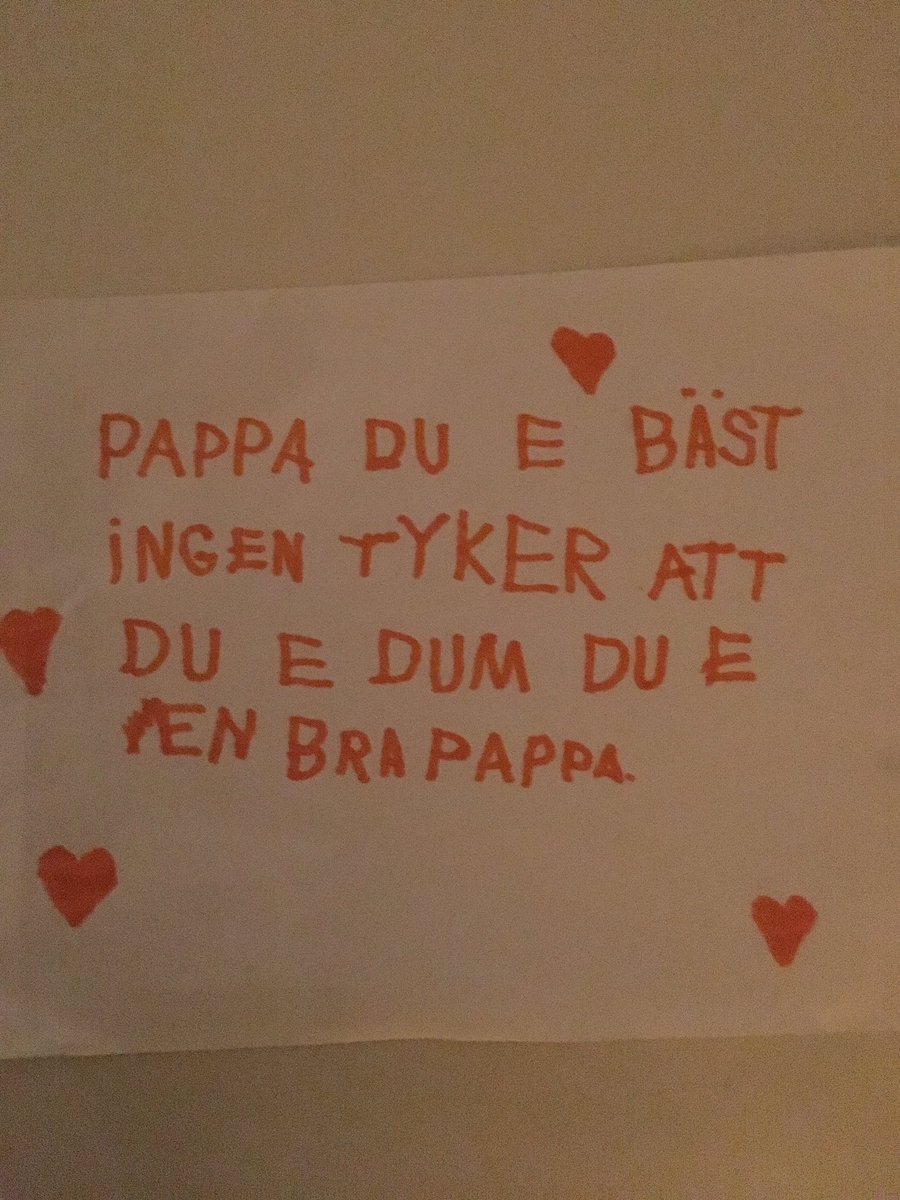 PAPPA DU E BÄST
iNGEN TYKER ATT
DU E DUM DU E
EN BRA PAPPA.